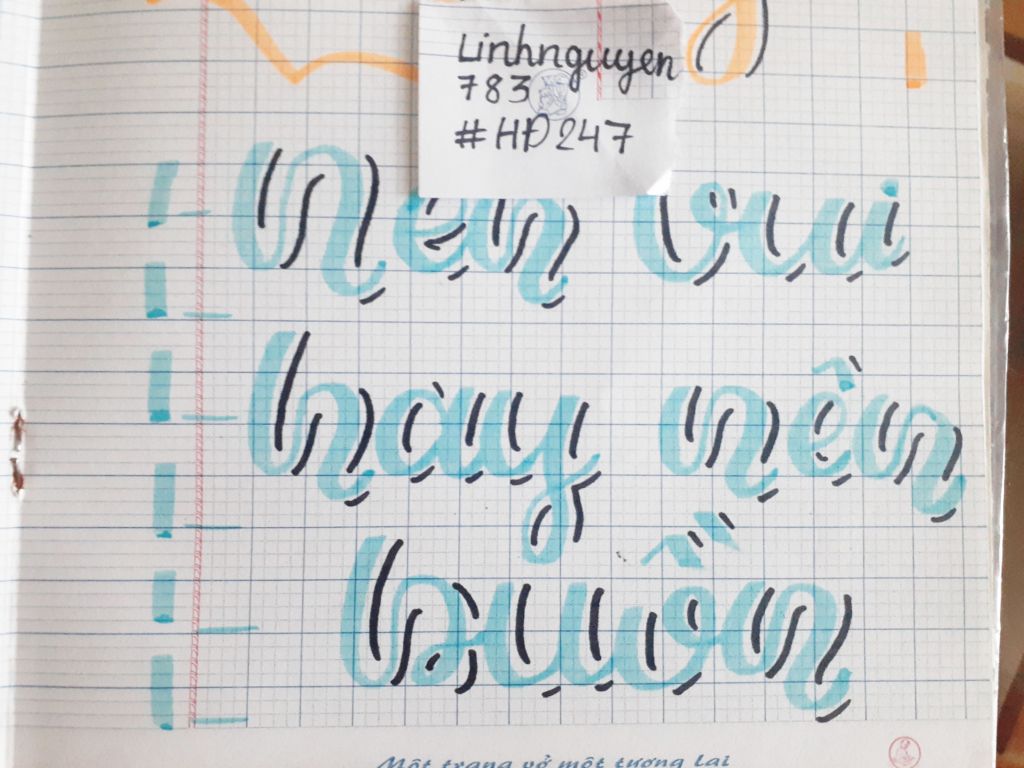 Linhnguyen
783
#HĐ247
Nên vui
hay nên
buồn
Một trang vở một tương lai